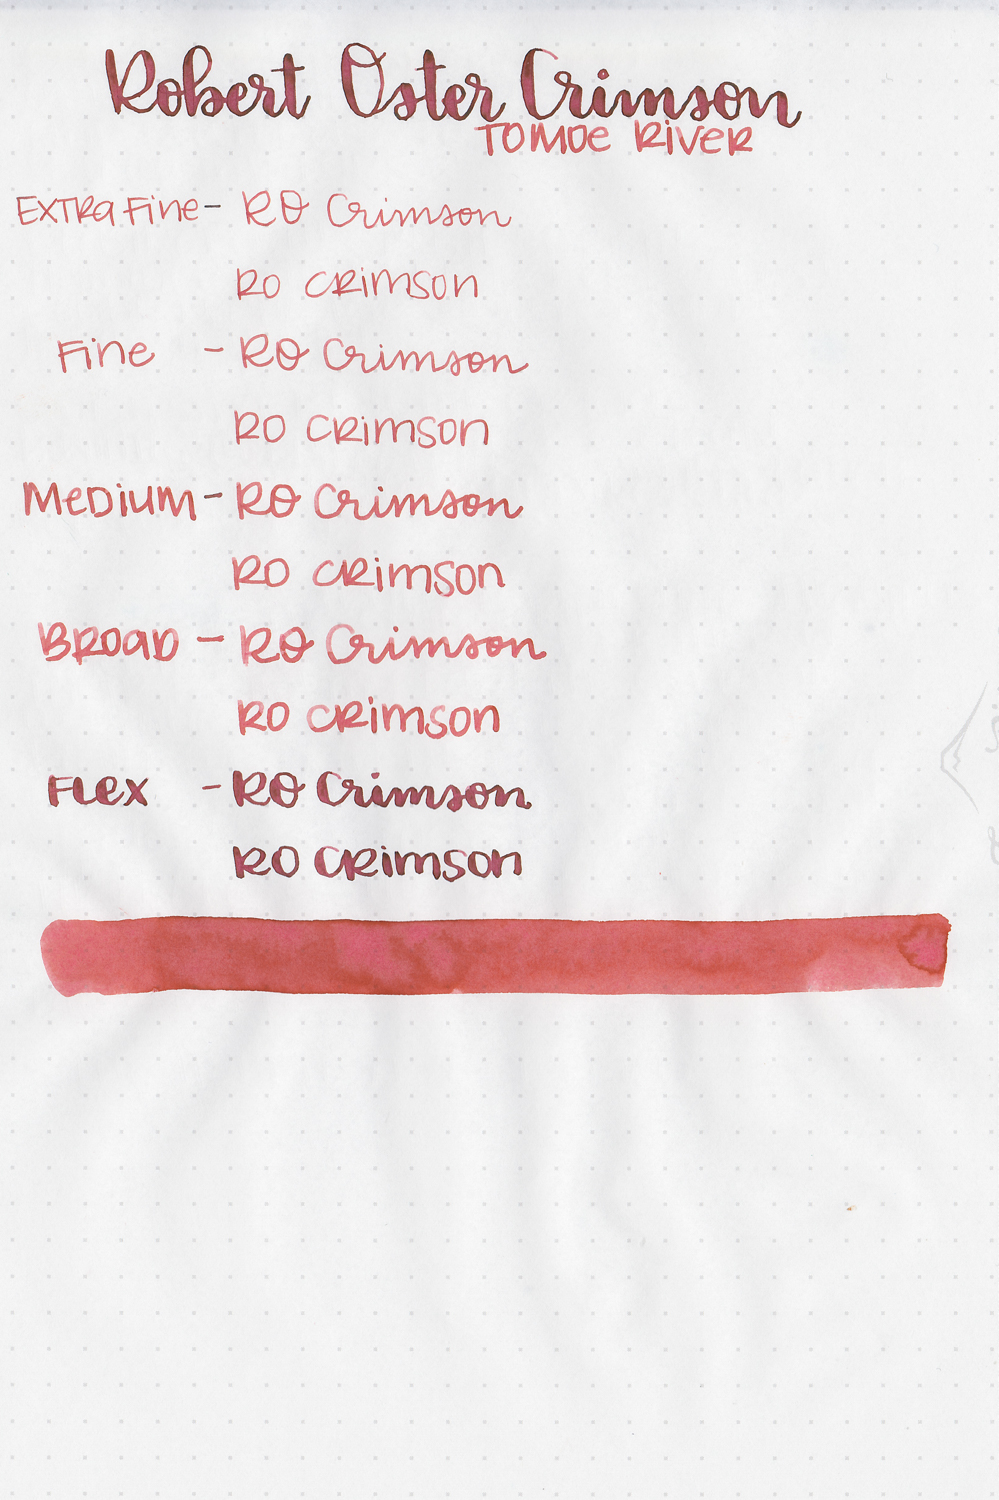 Robert Oster Crimson
TOMOE RIVER
EXTRA FINE - RO Crimson
RO CRIMSON
FINE - RO Crimson
RO CRIMSON
MEDIUM - RO Crimson
RO CRIMSON
BROAD - RO Crimson
RO CRIMSON
FLEX - RO Crimson
RO CRIMSON